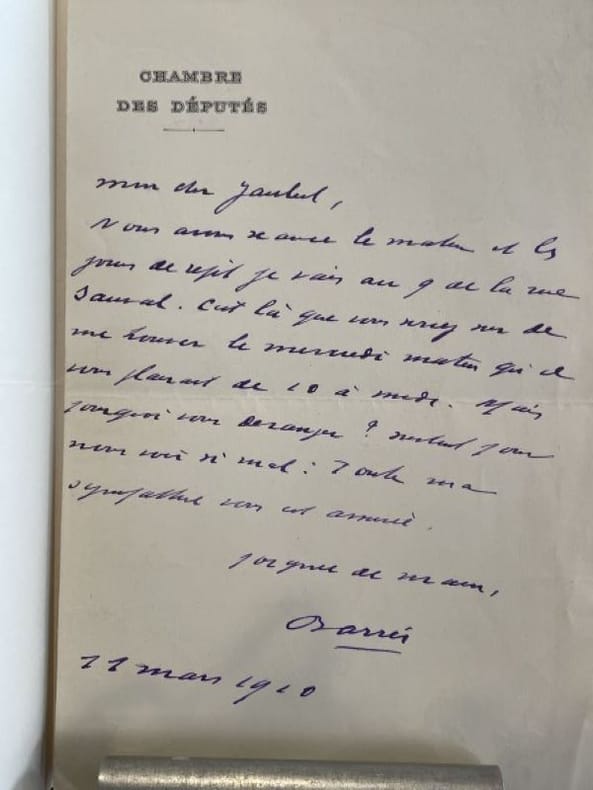 CHAMBRE
DES DÉPUTÉS
mon cher
Nous avons séance le matin et les
jours de répit je vais au 9 de la rue
Sauval. C'est là que vous serez sûr de
me trouver le mercredi matin qu'il
vous plairait de 10 à midi. Mais
pourquoi vous déranger ? surtout pour
nous voir si mal : Toute ma
sympathie vous est assurée.
poignée de main,
Barrès
11 mars 1910